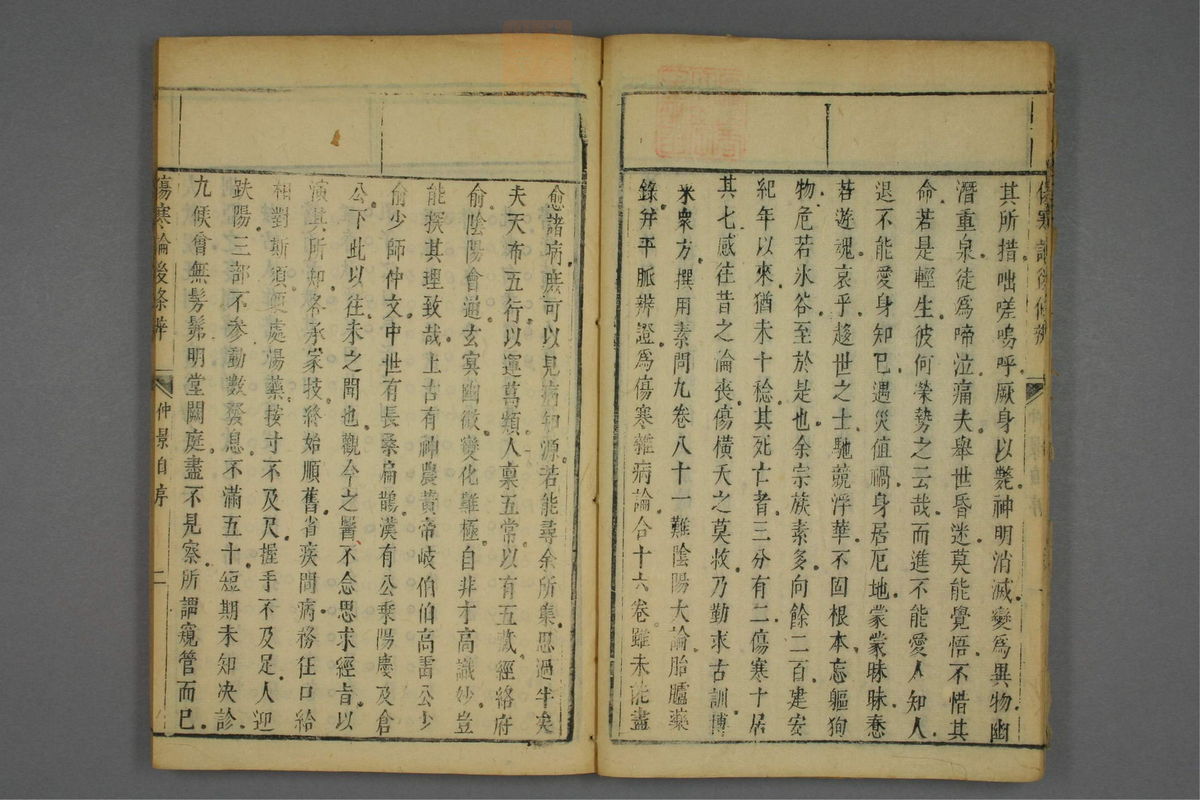 傷寒論後條辨
其所措咄嗟嗚呼厥身以斃神明消滅變爲異物幽
潛重泉徒爲啼泣痛夫舉世昏迷莫能覺悟不惜其
命若是輕生彼何榮勢之云哉而進不能愛人知人
退不能愛身知已遇災值禍身居厄地蒙蒙昧昧憃
若遊魂哀乎趍世之士馳競浮華不固根本忘軀狥
物危若氷谷至於是也余宗族素多向餘二百建安
紀年以來猶未十稔其死亡者三分有二傷寒十居
其七感往昔之淪喪傷橫夭之莫救乃勤求古訓博
采衆方撰用素問九卷八十一難陰陽大論胎臚藥
錄并平脈辨證爲傷寒雜病論合十六卷雖未能盡
愈諸病庶可以見病知源若能尋余所集思過半矣
夫天布五行以運萬類人稟五常以有五藏經絡府
俞陰陽會通玄冥幽微變化難極自非才高識妙豈
能探其理致哉上古有神農黃帝岐伯伯高雷公少
俞少師仲文中世有長桑扁鵲漢有公乘陽慶及倉
公下此以往未之聞也觀今之醫不念思求經旨以
演其所知各承家技終始順舊省疾問病務在口給
相對斯須便處湯藥按寸不及尺握手不及足人迎
趺陽三部不參動數發息不滿五十短期未知决診
九候曾無髣髴明堂闕庭盡不見察所謂窺管而已
傷寒論後條辨
仲景自序
二